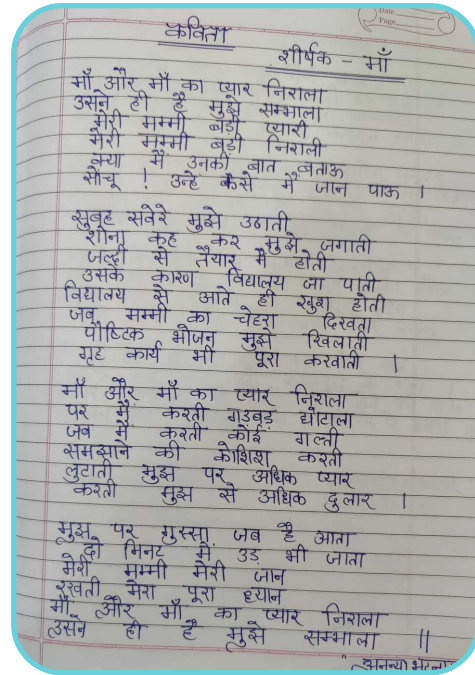 Date
Page
कविता
शीर्षक - माँ
माँ और माँ का प्यार निराला
उसने ही है मुझे सम्भाला
मेरी मम्मी बड़ी प्यारी
मेरी मम्मी बड़ी निराली
क्या मैं उनकी बात बताऊ
सोचू ! उन्हे कैसे मैं जान पाऊ ।
सुबह सवेरे मुझे उठाती
शोना कह कर मुझे जगाती
जल्दी से तैयार मैं होती
उसके कारण विद्यालय जा पाती
विद्यालय से आते ही खुश होती
जब मम्मी का चेहरा दिखता
पौष्टिक भोजन मुझे खिलाती
गृह कार्य भी पूरा करवाती ।
माँ और माँ का प्यार निराला
पर मैं करती गड़बड़ घोटाला
जब मैं करती कोई गल्ती
समझाने की कोशिश करती
लुटाती मुझ पर अधिक प्यार
करती मुझ से अधिक दुलार ।
मुझ पर गुस्सा जब है आता
दो मिनट में उड़ भी जाता
मेरी मम्मी मेरी जान
रखती मेरा पूरा ध्यान
माँ और माँ का प्यार निराला
उसने ही है मुझे सम्भाला ॥
अनन्या